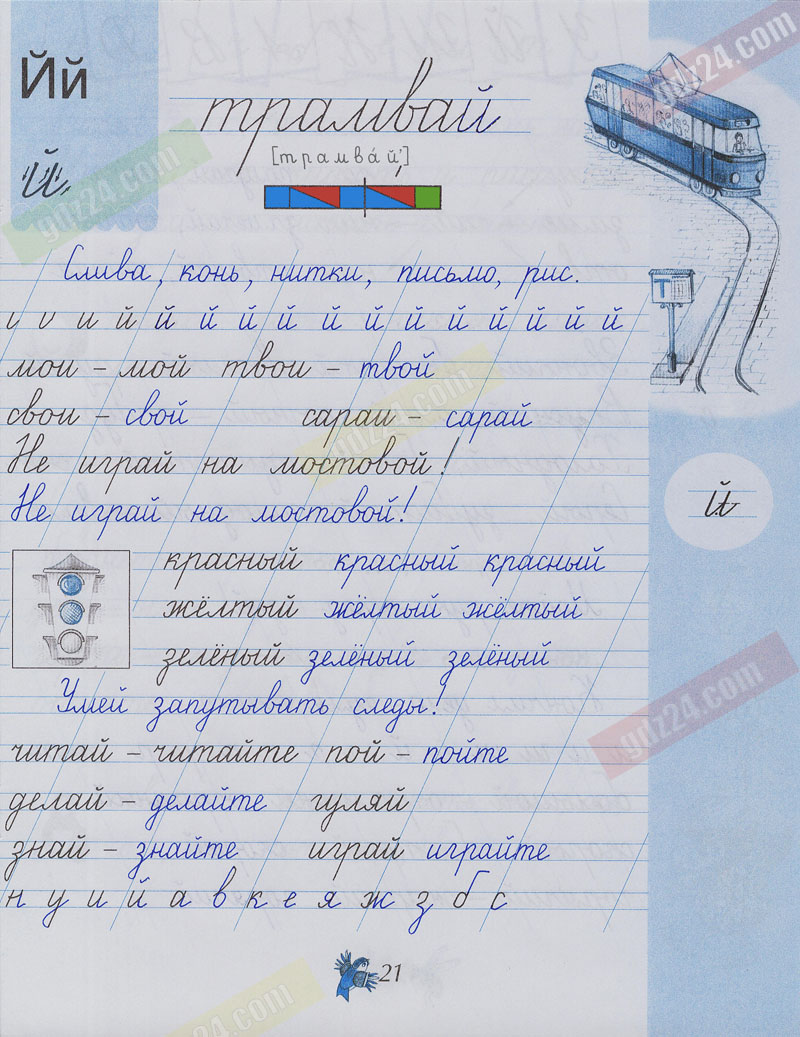 Йй
трамвай
й
[трамва́й,]
Слива, конь, нитки, письмо, рис.
и й й й й й й й й й й й й
мои – мой твои – твой
свои – свой сараи – сарай
Не играй на мостовой!
Не играй на мостовой!
й
красный красный красный
жёлтый жёлтый жёлтый
зелёный зелёный зелёный
Умей запутывать следы!
читай – читайте пой – пойте
делай – делайте гуляй
знай – знайте играй играйте
н у и й а в к е я ж з б с
21
Т
gdz24.com
gdz24.com
gdz24.com
gdz24.com
gdz24.com